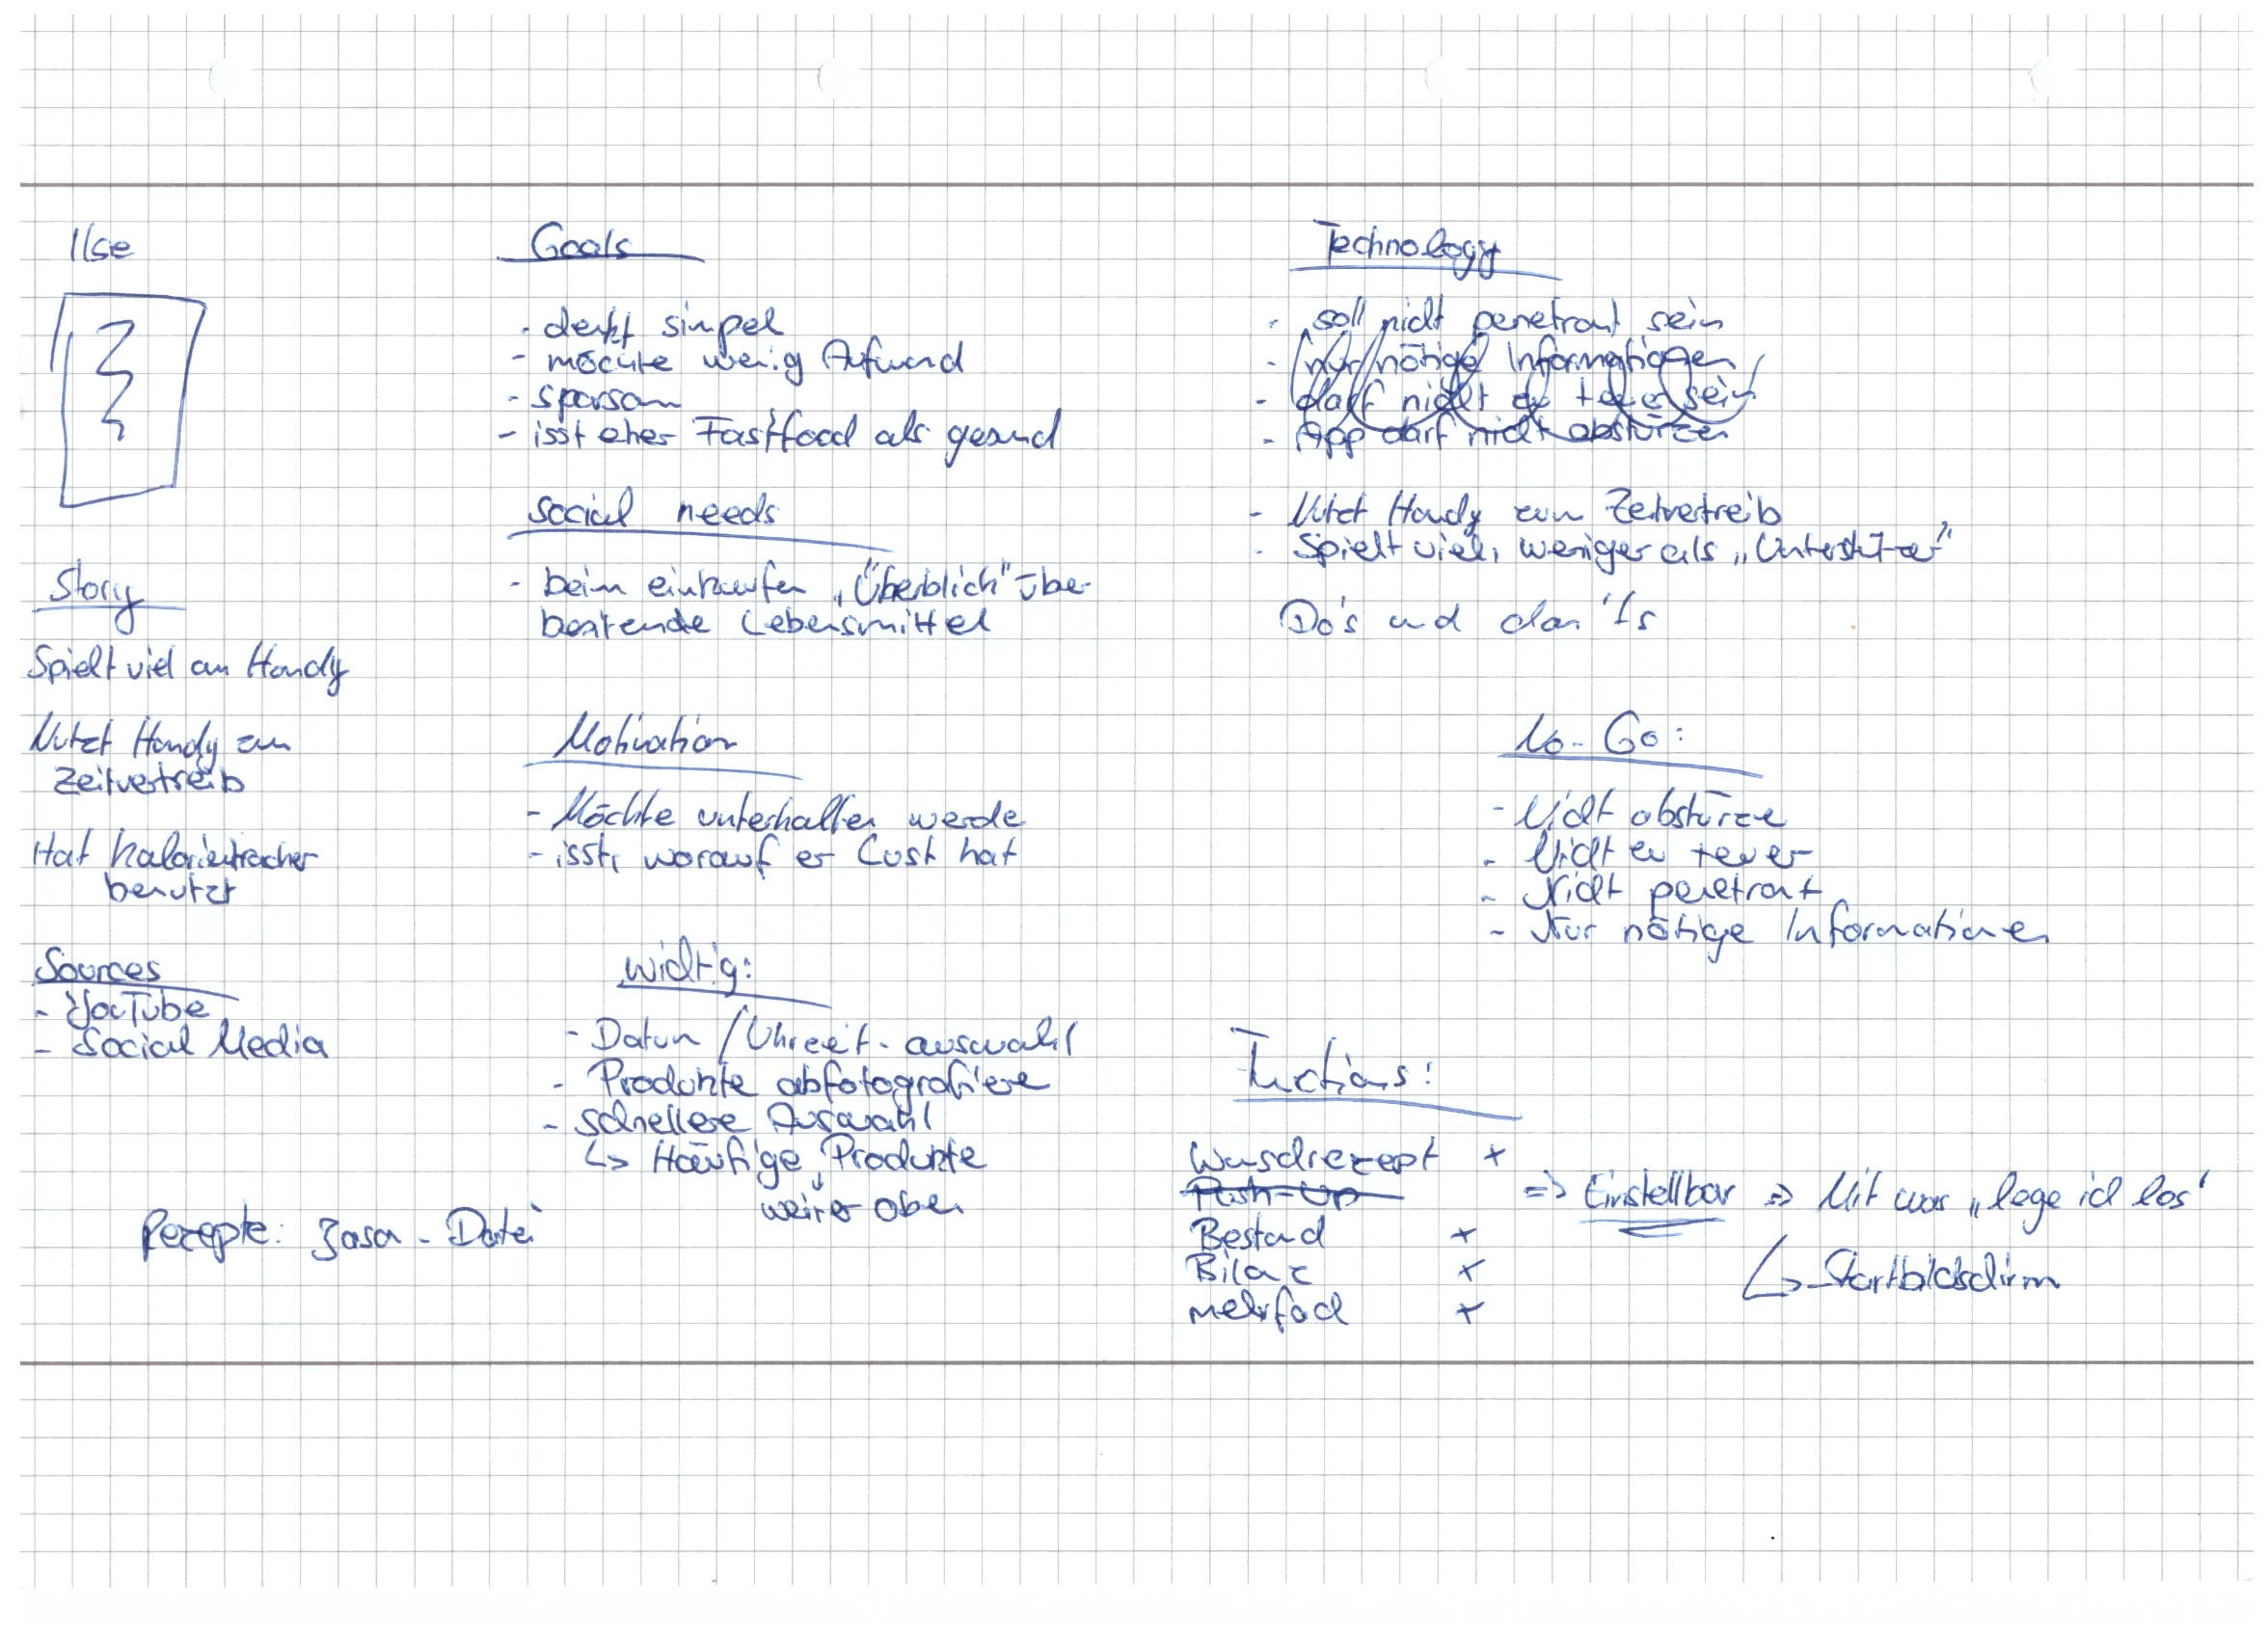 Ilse
Story
Spielt viel am Handy
Nutzt Handy zum
Zeitvertreib
Hat Kalorientracker
benutzt
Sources
- YouTube
- Social Media
Rezepte: -Datei
Goals
- denkt simpel
- möchte wenig Aufwand
- sparsam
- isst eher Fastfood als gesund
Social needs
- beim einkaufen „Überblick" über
Lebensmittel
Motivation
- Möchte unterhalten werde
- isst, worauf er Lust hat
wichtig:
- Datum / Uhrzeit-auswahl
- Produkte abfotografiere
- schnellere Auswahl
↳ Häufige Produkte
↓
weiter oben
Technology
- soll nicht penetrant sein
- nur nötige Informationen
- darf nicht zu teuer sein
- App darf nicht abstürzen
- Nutzt Handy zum Zeitvertreib
- Spielt viel, weniger als „Unterstützer"
Do's und don't's
No-Go:
- Nicht abstürze
- Nicht zu teuer
- Nicht penetrant
- Nur nötige Informationen
Functions:
Wunschrezept +
Push-Up
=> Einstellbar => Mit was „lege ich los"
↳ Startbildschirm
Bestand +
Bilanz +
mehrfach +